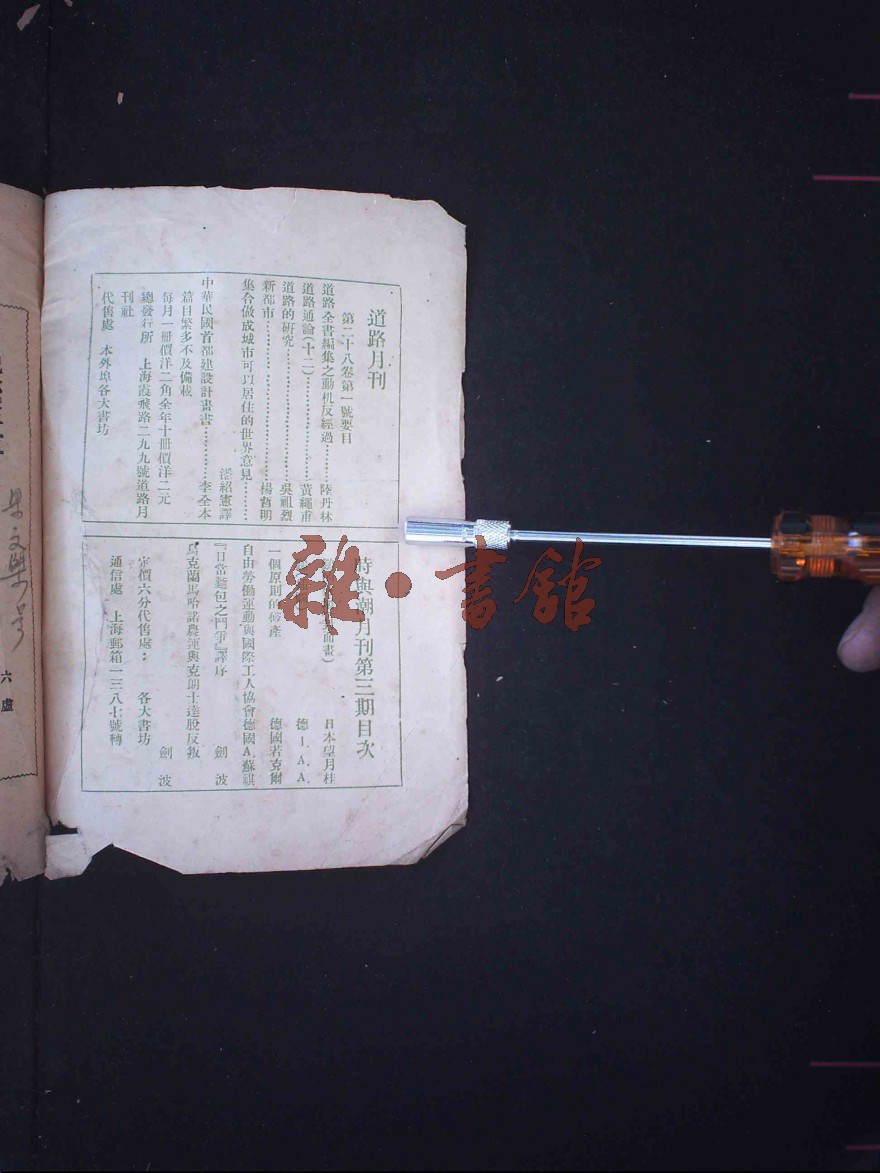 道路月刊
第二十八卷第一號要目
道路全書編集之動机反經過………陸丹林
道路通論(十二)………黃繩甫
道路的研究………吳祖烈
新都市………楊哲明
集合做成城市可以居住的世界意見………
潘紹憲譯
中華民國首都建設計畫書………李全本
篇目繁多不及備載
每月一冊價洋二角全年十冊價洋二元
總發行所 上海霞飛路二九九號道路月
刊社
代售處 本外埠各大書坊
時與潮月刊第三期目次
面畫) 日本望月桂
德I.A.A.
一個原則的破產 德國若克爾
自由勞働運動與國際工人協會德國A.蘇祺
『日常麵包之鬥爭』譯序 劍波
烏克蘭馬哈諾農運與克朗士達脫反叛
劍波
定價六分代售處: 各大書坊
通信處 上海郵箱一三八七號轉
雜·書館
六
盧